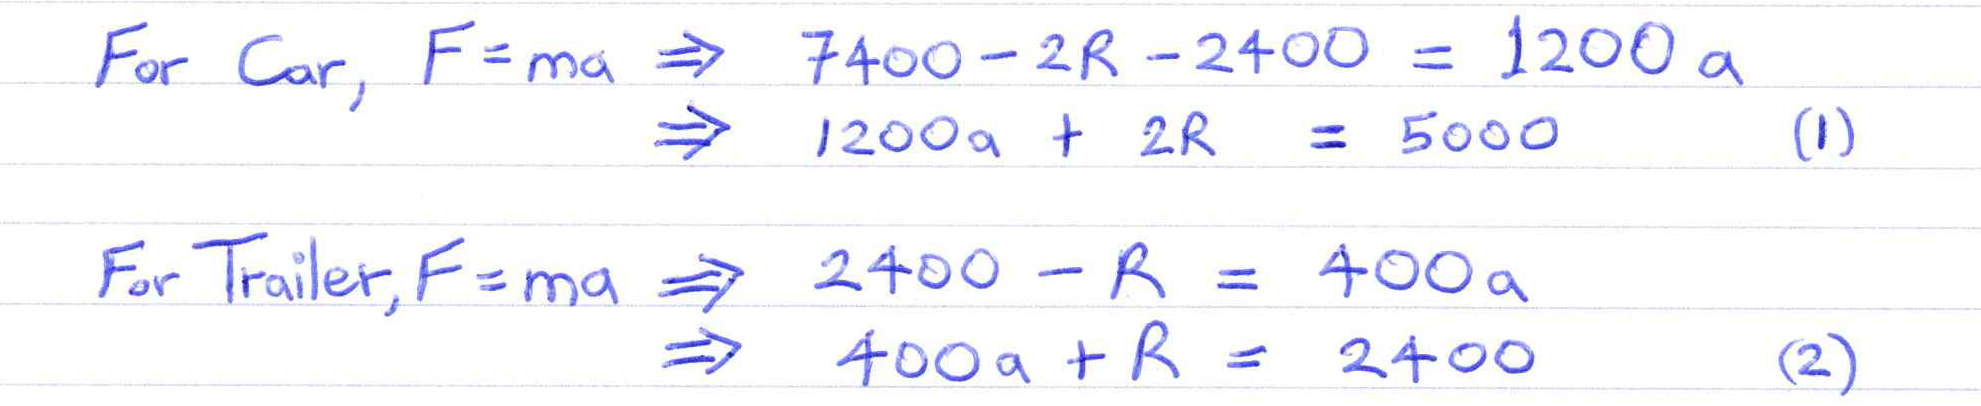 For Car, F = ma ⇒ 7400 - 2R - 2400 = 1200a
⇒ 1200a + 2R = 5000 (1)
For Trailer, F = ma ⇒ 2400 - R = 400a
⇒ 400a + R = 2400 (2)